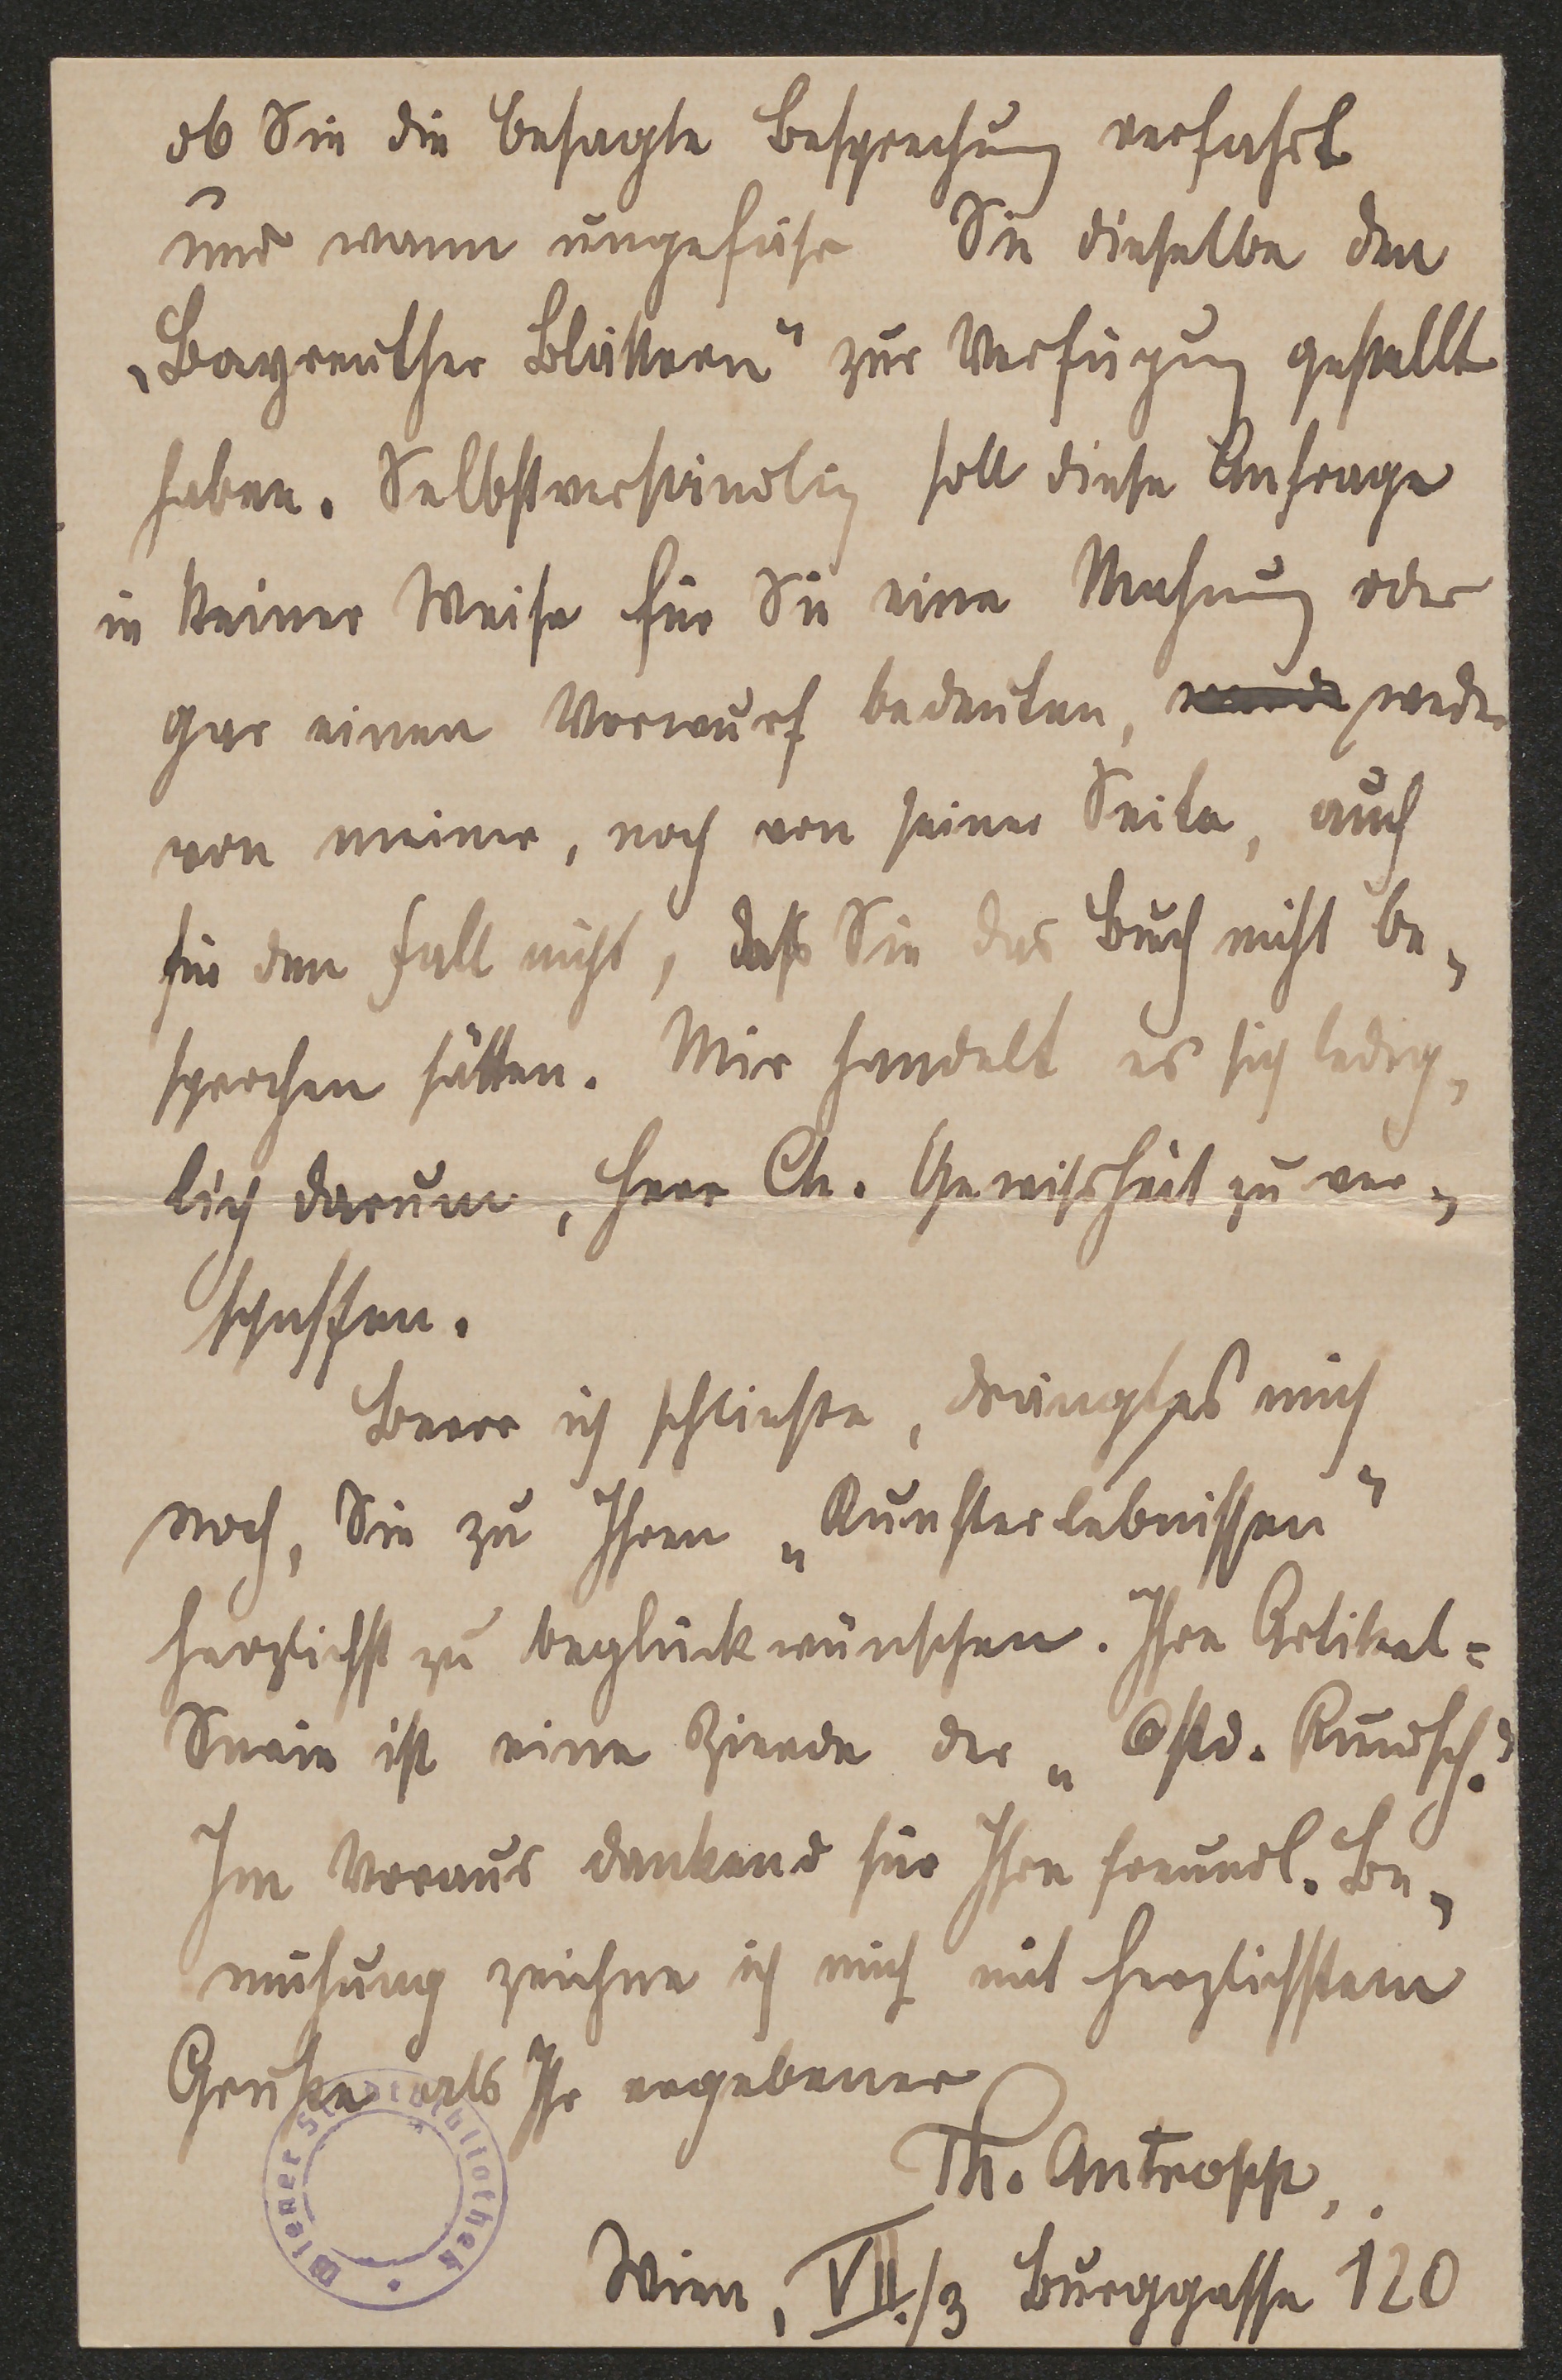 ob Sie die besagte Besprechung verfaßt
und wann ungefähr Sie dieselbe den
„Bayreuther Blättern" zur Verfügung gestellt
haben. Selbstverständlich soll diese Anfrage
in keiner Weise für Sie eine Mahnung oder
gar einen Vorwurf bedeuten, weder
von meiner, noch von seiner Seite, auch
für den Fall nicht, daß Sie das Buch nicht be-
sprochen hätten. Mir handelt es sich ledig-
lich darum, Herr Ch. Gewißheit zu ver-
schaffen.
Bevor ich schließe, drängt es mich
noch, Sie zu Ihren „Kunsterlebnissen"
herzlichst zu beglückwünschen. Ihre Artikel=
Serie ist eine Zierde der „Ostd. Rundsch."
Im Voraus dankend für Ihre freundl. Be-
mühung zeichne ich mich mit herzlichstem
Gruße als Ihr ergebener
Th. Antropp,
Wien, VII./3 Burggasse 120
Wiener Stadtbibliothek